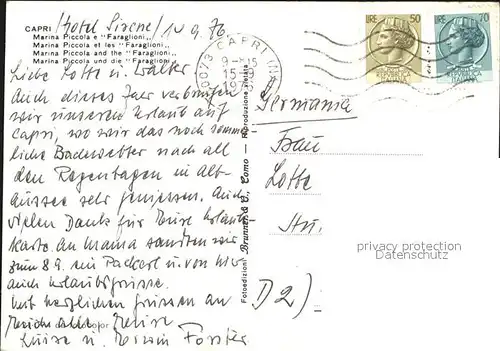 CAPRI / Hotel Sirene / 10.9.76.
Marina Piccola e "Faraglioni"
Marina Piccola et les "Faraglioni"
Marina Piccola and the "Faraglioni"
Marina Piccola und die "Faraglioni"
Liebe Lotte u. Walter
Auch dieses Jahr verbringen
wir unseren Urlaub auf
Capri, wo wir das noch sommer-
liche Badewetter nach all
den Regentagen in Alt-
aussee sehr geniessen. Auch
vielen Dank für Eure Urlaubs-
karte. An Mama sandten wir
zum 8.9. ein Packerl u. von hier
auch Urlaubsgrüsse.
Mit herzlichen Grüssen an
Euch alle Eure
Luise u. Erwin Forster
color
Fotoedizioni Brunner & C., Como - Riproduzione vietata
80073 CAPRI (NA)
9-15
15-9
LIRE 50
LIRE 70
Germania
Frau
Lotte
Stu.
privacy protection
watermark
D2)